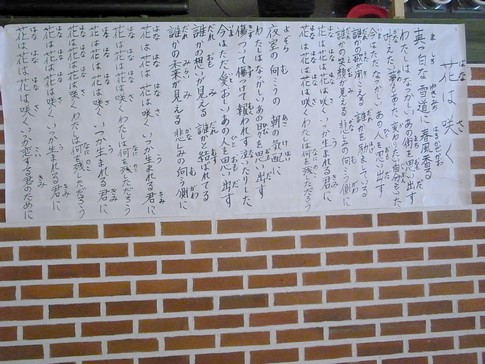 花は咲く
真っ白な 雪道に 春風香る
わたしは なつかしい あの街を 思い出す
叶えたい 夢もあった 変わりたい 自分もいた
今はただ なつかしい あの人を 思い出す
誰かの歌が聞こえる 誰かを励ましてる
誰かの笑顔が見える 悲しみの向こう側に
花は 花は 花は咲く いつか生まれる君に
花は 花は 花は咲く わたしは何を残しただろう
夜空の 向こうの 朝の気配に
わたしは なつかしい あの日々を 思い出す
傷ついて 傷つけて 報われず 泣いたりした
今はただ 愛おしい あの人を 思い出す
誰かの想いが見える 誰かと結ばれてる
誰かの未来が見える 悲しみの向こう側に
花は 花は 花は咲く いつか生まれる君に
花は 花は 花は咲く わたしは何を残しただろう
花は 花は 花は咲く いつか生まれる君に
花は 花は 花は咲く わたしは何を残しただろう
花は 花は 花は咲く いつか生まれる君に
花は 花は 花は咲く いつか恋する君のために